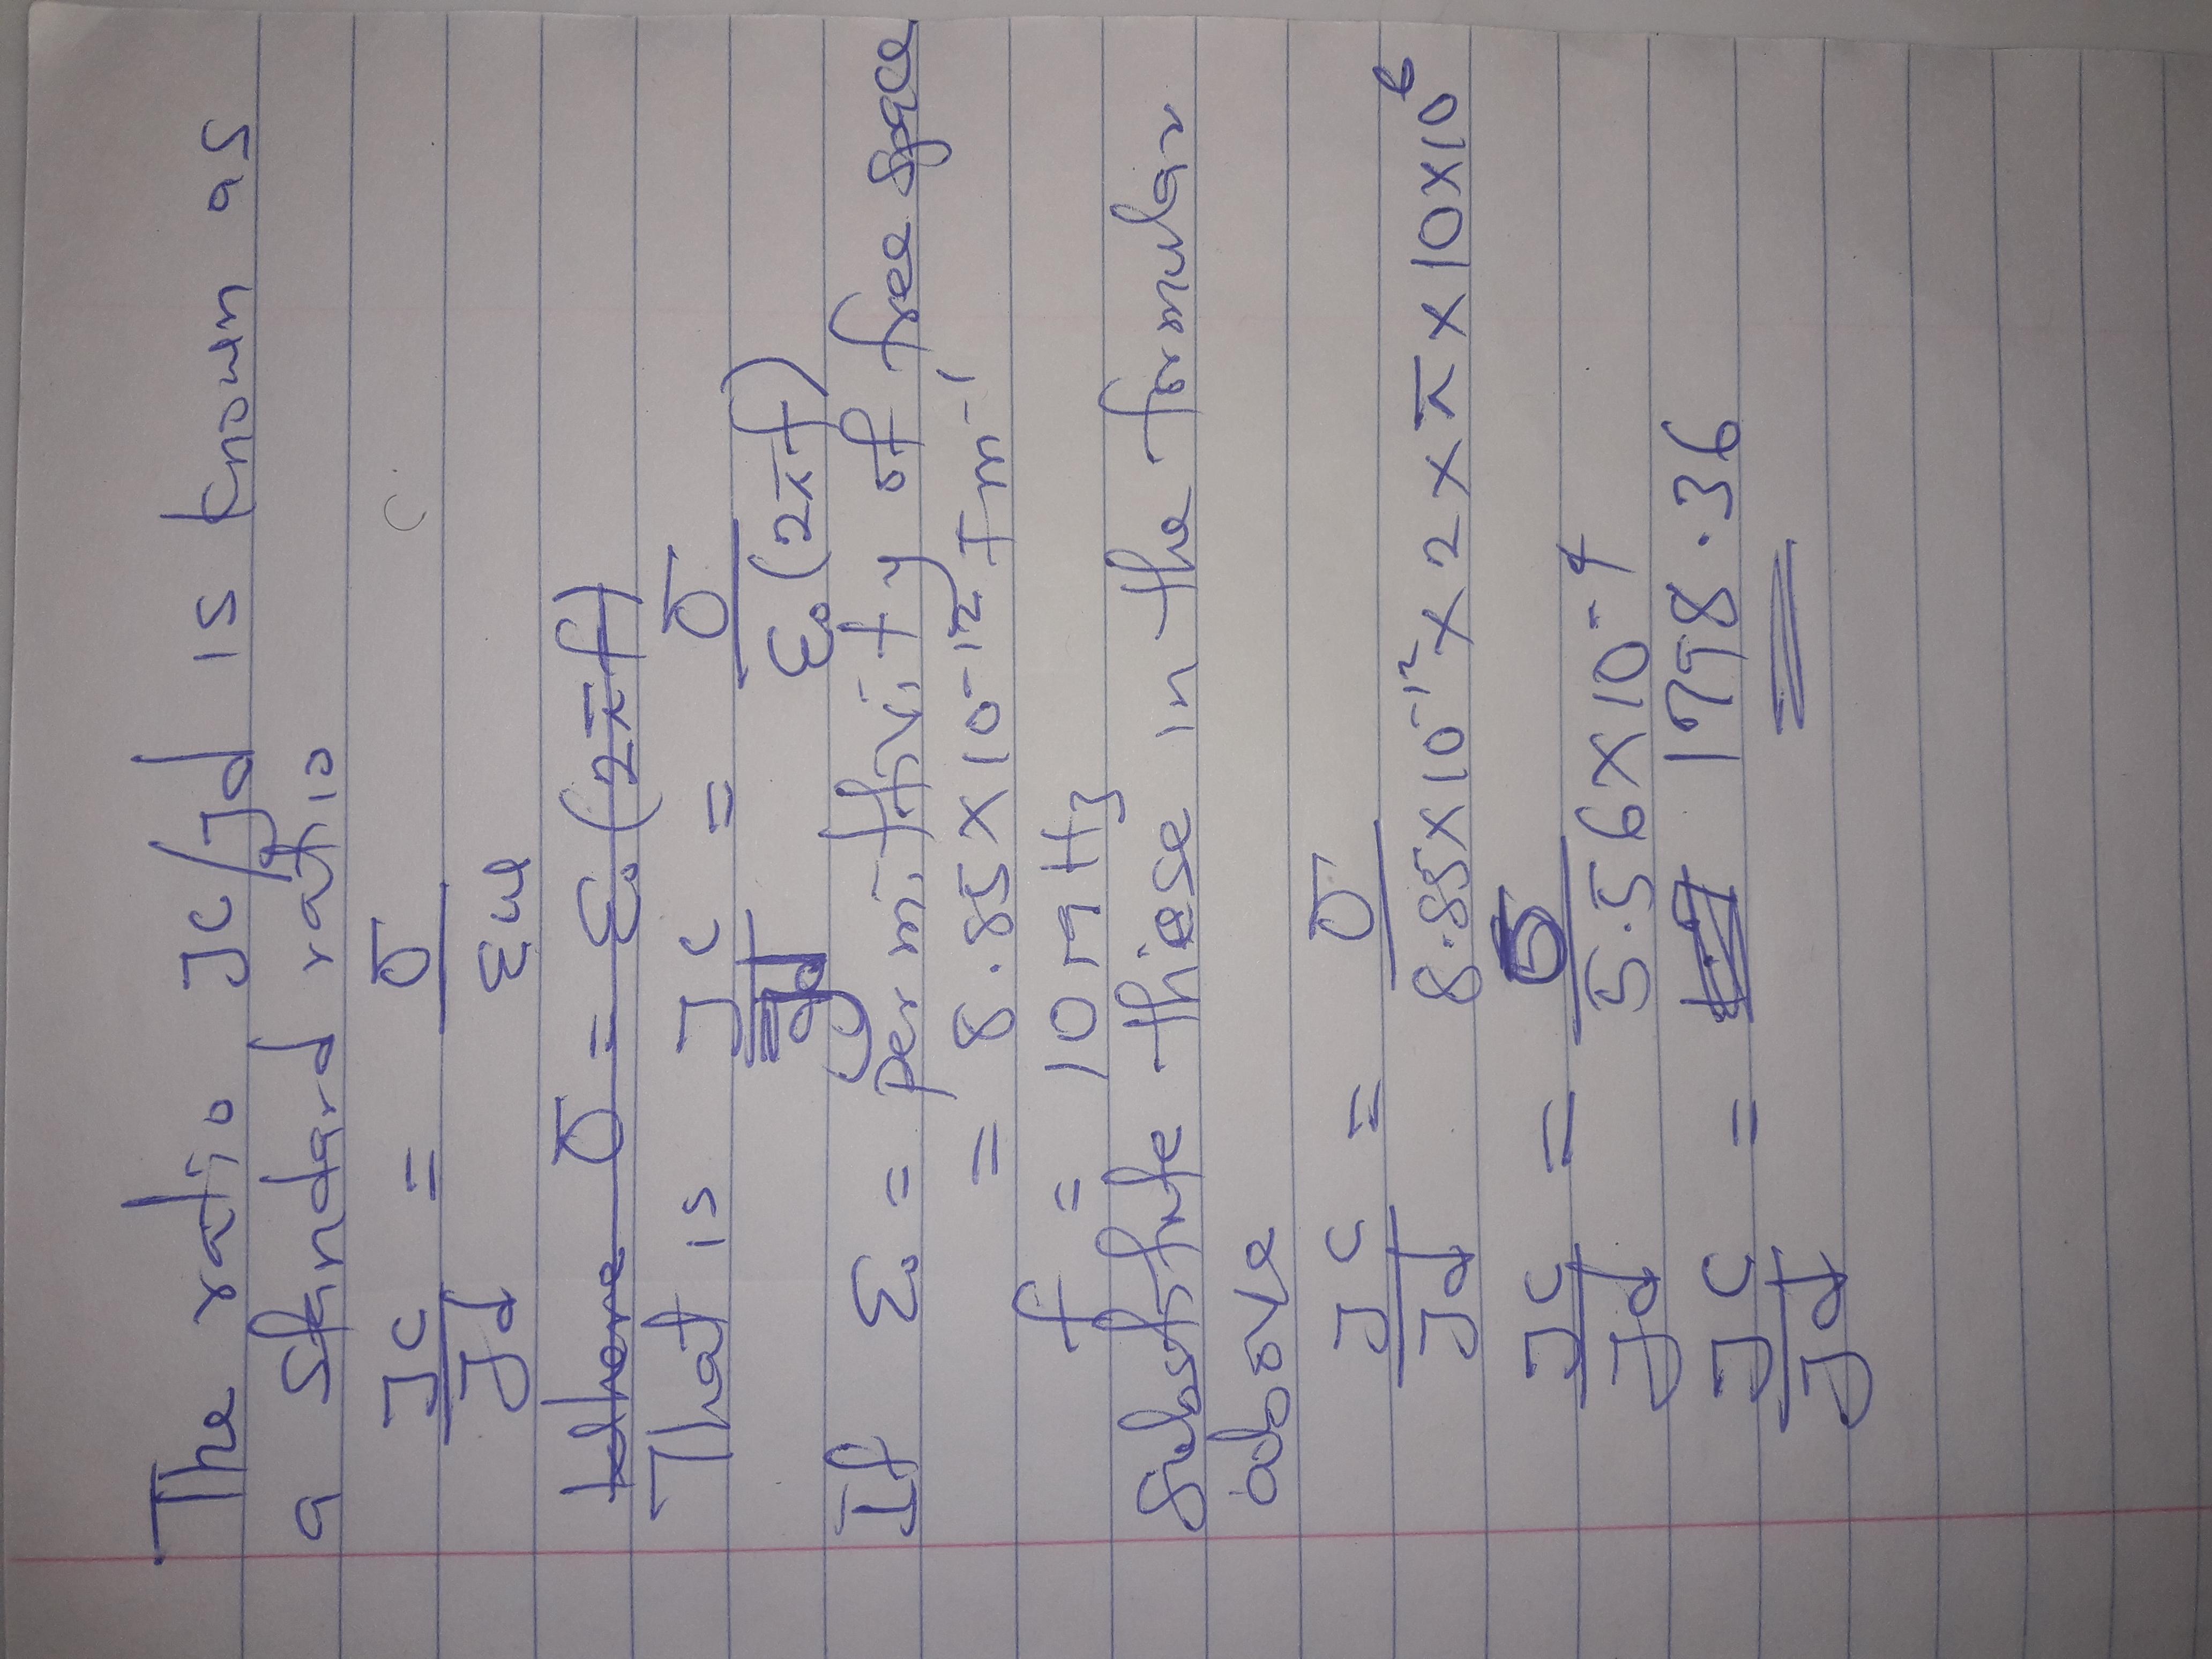 The ratio Jc/Jd is known as
a standard ratio
Jc/Jd = σ/εω
where σ = ε₀(2πf)
That is Jc/Jd = σ/ε₀(2πf)
If ε₀ = permittivity of free space
= 8.85 × 10⁻¹² Fm⁻¹
f = 10 MHz
Substitute these in the formular
above
Jc/Jd = σ/8.85×10⁻¹² × 2 × π × 10×10⁶
Jc/Jd = σ/5.56×10⁻⁴
Jc/Jd = 1798.36